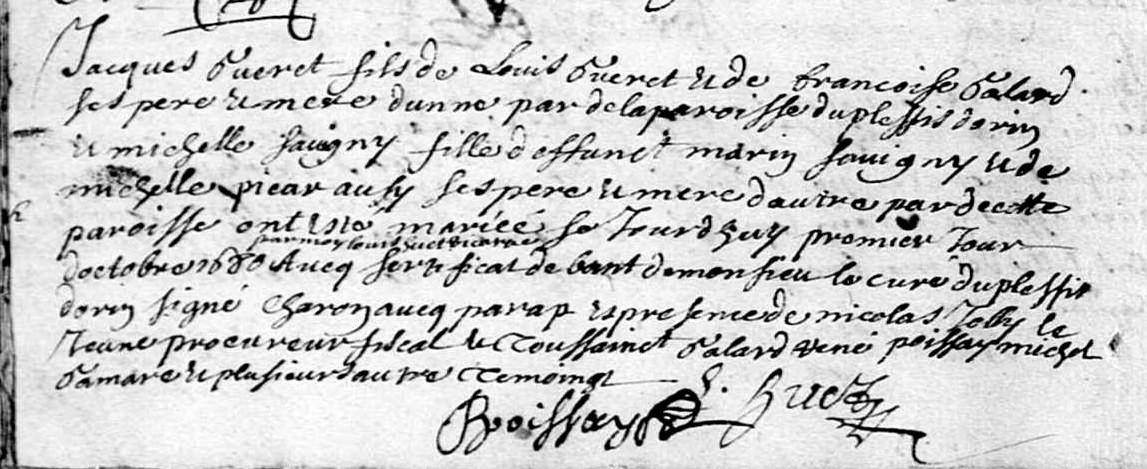 Jacques Gueret fils de Louis Gueret & de francoise Galard
ses pere & mere dunne par de la paroisse du plessis dorin
& michelle sauigny fille deffunct marin sauigny & de
michelle picar aussy ses pere & mere dautre par de cette
paroisse ont este mariéé se Jourdhuy premier Jour
par moy louis huet vicaire
doctobre 1680 Aucq sertificat de bant de monsieu le curé du plessis
dorin signé charon aucq parap es presence de nicolas Jolly le
Jeune procureur fiscal & Toussainct Galard rené poissay michel
Gamare & plusieurs autre Temoingt
Rpoissay L. Huet